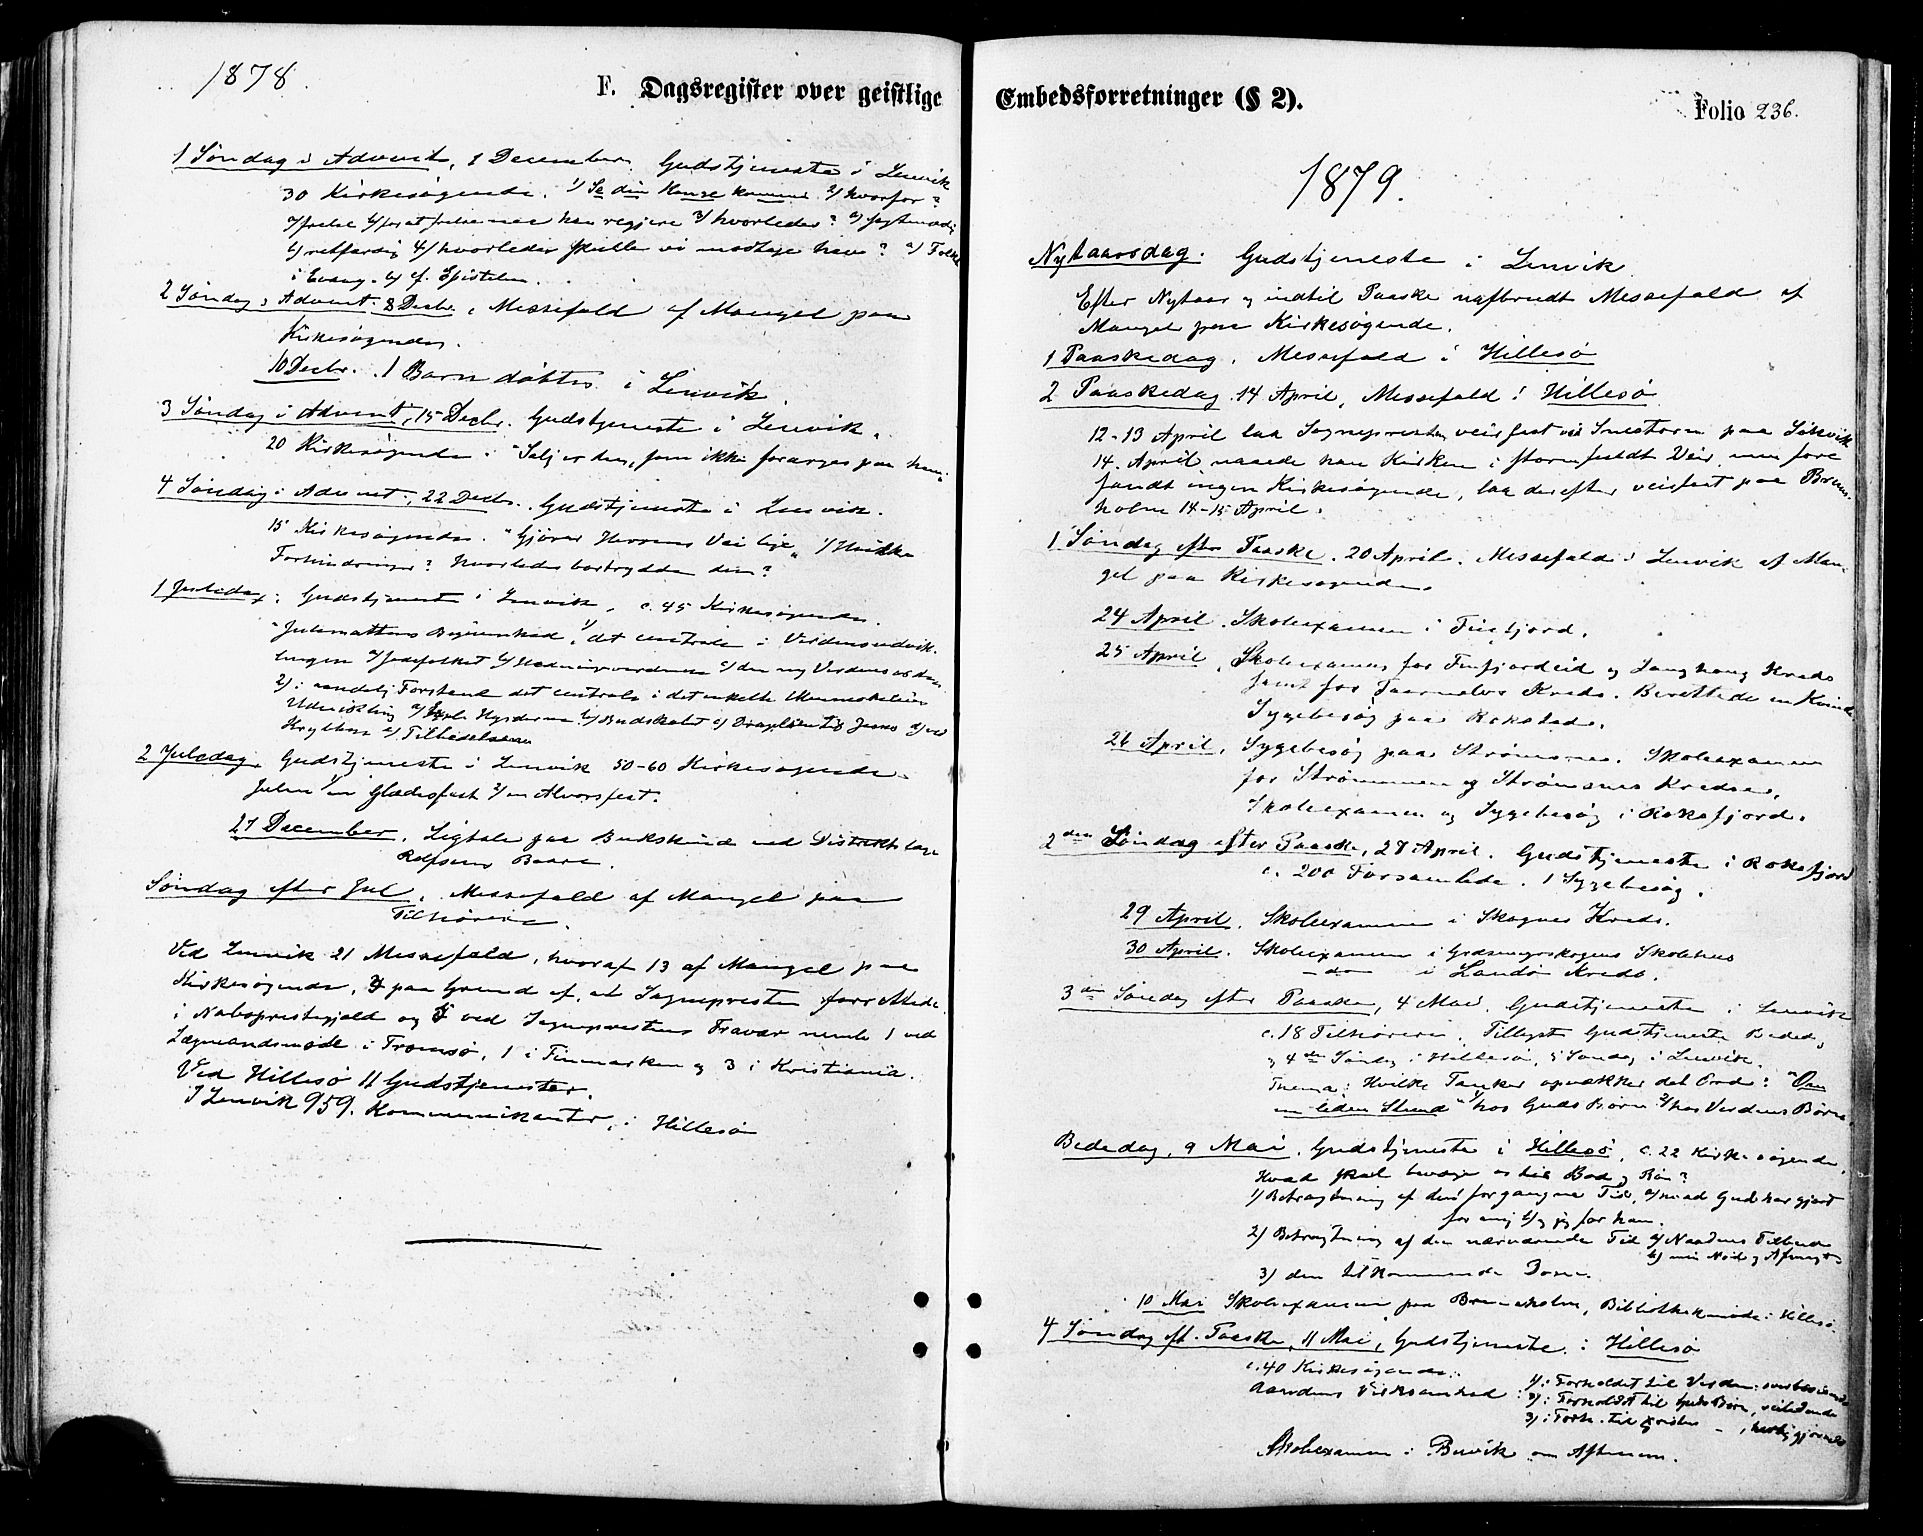 1878.
F. Dagsregister over geistlige
1 Søndag i Advent, 1 December. Gudstjeneste i Lenvik
30 Kirkesøgende. 1) Se din Konge kommer 2) hvorfor?
a) frelse b) for at frelse maa han regjere 3) hvorledes? a) sagtmodig
b) retfærdig 4) hvorledes skulle vi modtage ham? a) Folket
i Evang. b) cf. Epistelen.
2 Søndag i Advent. 8 Decbr. Messefald af Mangel paa
Kirkesøgende.
10 Decbr. 1 Barn døbtes i Lenvik.
3 Søndag i Advent, 15 Decbr. Gudstjeneste i Lenvik.
20 Kirkesøgende. "Salig er den, som ikke forarges paa ham.
4 Søndag i Advent, 22 Decbr. Gudstjeneste i Lenvik.
15 Kirkesøgende. "Gjører Herrens Vei lige" 1) Hvilke
Forhindringer? hvorledes bortrydde dem?
1 Juledag. Gudstjeneste i Lenvik, c. 45 Kirkesøgende.
"Julenattens Begivenhed" 1) det centrale i Verdensudvik-
lingen a) Jødefolket b) Hedningeverdenen c) den ny Verdens
2) i aandelig Forstand det centrale i det enkelte Menneskes
Udvikling a) Hyrderne b) Budskabet c) til Jesus d) ved
Krybben e) Tilbedelsen
2 Juledag. Gudstjeneste i Lenvik 50-60 Kirkesøgende.
Julen 1) en Glædesfest 2) en Alvorsfest.
27 December. Ligtale paa Bukskind ved Distriktslæge
Rolfsens Baare.
Søndag efter Jul. Messefald af Mangel paa
Tilhørere.
Ved Lenvik 21 Messefald, hvoraf 13 af Mangel paa
Kirkesøgende, 3 paa Grund af, at Sognepresten forrettede
i Nabopræstegjeld og 5 ved Sognepræstens Fravær nemlig 1 ved
Lægmandsmøde i Tromsø, 1 i Finmarken og 3 i Kristiania.
Ved Hillesø 11 Gudstjenester.
I Lenvik 959. Kommunikanter, i Hillesø
Embedsforretninger (§ 2).
Folio 236.
1879.
Nytaarsdag. Gudstjeneste i Lenvik.
Efter Nytaar og indtil Paaske uafbrudt Messefald af
Mangel paa Kirkesøgende.
1 Paaskedag. Messefald i Hillesø
2 Paaskedag. 14 April, Messefald i Hillesø.
12-13 April laa Sognepresten veirfast ved Snestorm paa
14. April naaede han Kirken i stormfuldt Veir, men fore
fandt ingen Kirkesøgende, laa derefter veirfast paa Brens-
holm 14-15 April.
1 Søndag efter Paaske. 20 April. Messefald i Lenvik af Man-
gel paa Kirkesøgende.
24 April. Skoleexamen i Finfjord.
25 April. Skoleexamen for Finfjordeid og Langhaug Kreds
samt for Kreds. Berettede en Kvinde
Sygebesøg paa
26 April. Sygebesøg paa Strømsnes. Skoleexamen
for Strømmen og Strømsnes Kredse.
Skoleexamen og Sygebesøg i Rossfjord.
2den Søndag efter Paaske, 27 April. Gudstjeneste i Rossfjord
c. 200 Forsamlede. 1 Sygebesøg.
29 April. Skoleexamen i Skognes Kreds.
30 April. Skoleexamen i Skolehus
—do— i Landø Kreds.
3die Søndag efter Paaske, 4 Mai. Gudstjeneste i Lenvik
c. 18 Tilhørere. Tillyst Gudstjeneste Bededag
og 4de Søndag i Hillesø, 5 Søndag i Lenvik.
Thema: Hvilke Tanker opvækker det Ord: "Om
en liden Stund" 1) hos Guds Børn 2) hos Verdens Børn.
Bededag. 9 Mai. Gudstjeneste i Hillesø, c. 22 Kirkesøgende,
Hvad skal bevæge os til Bod og Bøn?
1) Betragtning af den forgangne Tid, a) hvad Gud har gjort
for mig b) og jeg for ham.
2) Betragtning af den nærværende Tid a) Naadens Tilbud
b) min Nød og Afmagt
3) den tilkommende Dom.
10 Mai Skoleexamen paa Brensholm, Bibliothekmøde i Hillesø.
4 Søndag eft. Paaske, 11 Mai, Gudstjeneste i Hillesø
c. 40 Kirkesøgende.
Aandens Virksomhed 1) i Forholdet til Verden: overbevisende
2) i Forholdet til Guds Børn, veiledende
3) i Forh. til Kristus — , herliggjørende
Skoleexamen i Buvik om Aftenen.